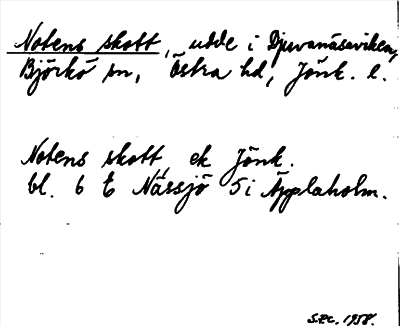 Notens skott, udde i Djuvanäsaviken,
Björkö sn, Östra hd, Jönk. l.
Notens skott, ek Jönk.
bl. 6 t Nässjö S i Äpplaholm.
1958.